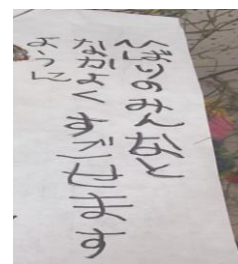 のみんなと
なかよくすごせます
ように